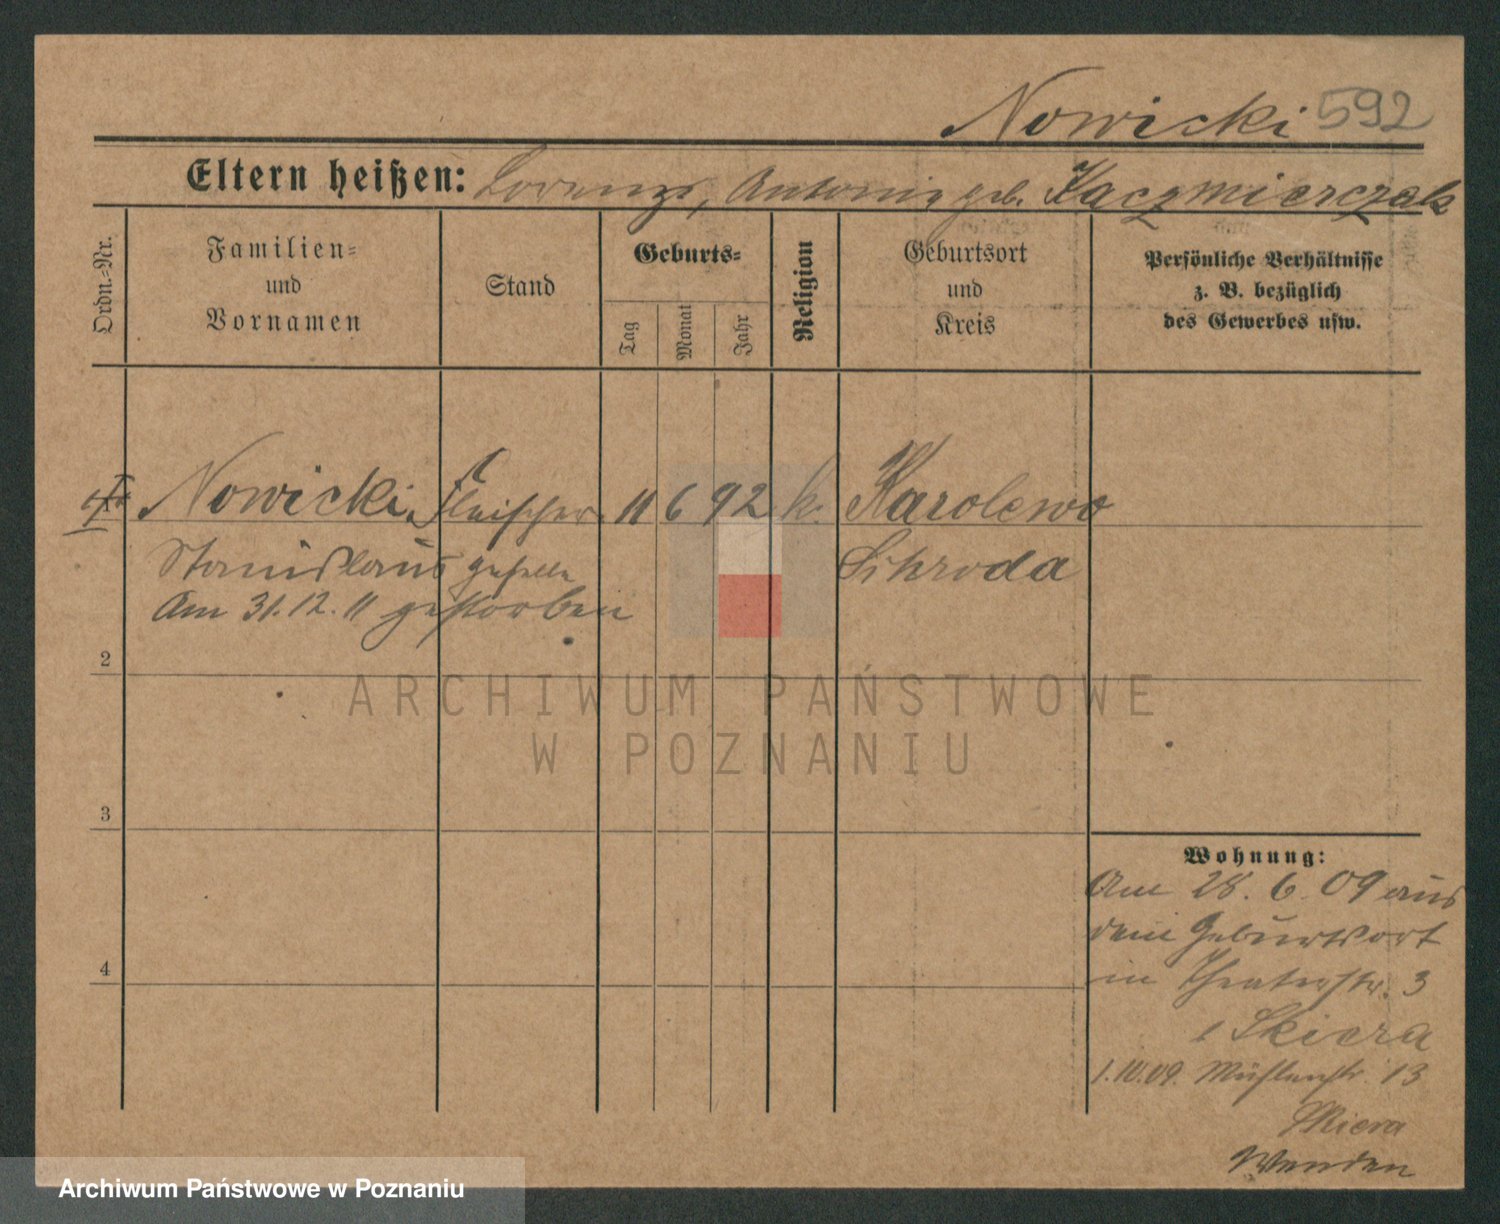 Nowicki 592
Eltern heißen: Lorenz, Antonie geb. Kaczmierczak
Ordn.-Nr.
Familien-
und
Vornamen
Stand
Geburts-
Tag
Monat
Jahr
Religion
Geburtsort
und
Kreis
Persönliche Verhältnisse
z. B. bezüglich
des Gewerbes usw.
Nowicki Fleischer 11 6 92 k. Karolewo
Stanislaus geselle Schroda
Am 31.12.11 gestorben
2
ARCHIWUM PAŃSTWOWE
W POZNANIU
3
Wohnung:
Am 28.6.09 aus
dem Geburtsort
4
in Theaterstr. 3
Skiera
1.10.09. Mühlenstr. 13
Skiera
Wenden
Archiwum Państwowe w Poznaniu